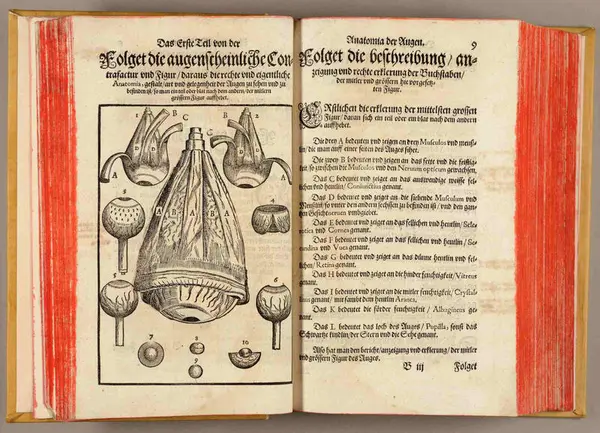 Das Erste Teil von der
Folget die augenscheinliche Con
trafactur vnd Figur / daraus die rechte vnd eigentliche
Anatomia / gestalt / art vnd gelegenheit der Augen zu sehen vnd zu
befinden ist / so man ein teil oder blat nach dem andern / der mitlern
grössern Figur auffhebt.
1
B
C
B
2
A
A
D
B
D
B
A
A
3
4
5
6
7
8
9
10
Anatomia der Augen.
9
Folget die beschreibung / an-
zeigung vnd rechte erklerung der Buchstaben /
der mitler vnd grössern hie vorgesetz-
ten Figur.
Erstlichen die erklerung der mittelsten grossen
Figur / daran sich ein teil oder ein blat nach dem andern
auffhebet.
Die drey A bedeuten vnd zeigen an drey Musculos vnd meuß-
lin / die man auff einer seiten des Auges sihet.
Die zwey B bedeuten vnd zeigen an das fette vnd die feistig-
keit / so zwischen die Musculos vnd den Nervum opticum gewachsen.
Das C bedeutet vnd zeiget an das auswendige weisse fel-
lichen vnd heutlin / Coniunctiua genant.
Das D bedeutet vnd zeiget an die siebende Musculum vnd
Meußlin / so vnter den andern sechssen zu befinden ist / vnd den gan-
tzen Gesichtneruen vmbgiebet.
Das E bedeutet vnd zeiget an das fellichen vnd heutlin / Scle-
rotica vnd Cornea genant.
Das F bedeutet vnd zeiget an das fellichen vnd heutlin / Se-
cundina vnd Vuea genant.
Das G bedeutet vnd zeiget an das dünne heutlin vnd fel-
lichen / Retina genant.
Das H bedeutet vnd zeiget an die hinder feuchtigkeit / Vitreus
genant.
Das I bedeutet vnd zeiget an die mitler feuchtigkeit / Crystal-
linus genant / mit sampt dem heutlin Aranea.
Das K bedeutet die förder feuchtigkeit / Albugineus ge-
nant.
Das L bedeutet das loch des Auges / Pupilla / sonst das
Schwartze kindlin / der Stern und die Sehe genant.
Also hat man den bericht / anzeigung vnd erklerung / der mitler
vnd grössern Figur des Auges.
B iij
Folget